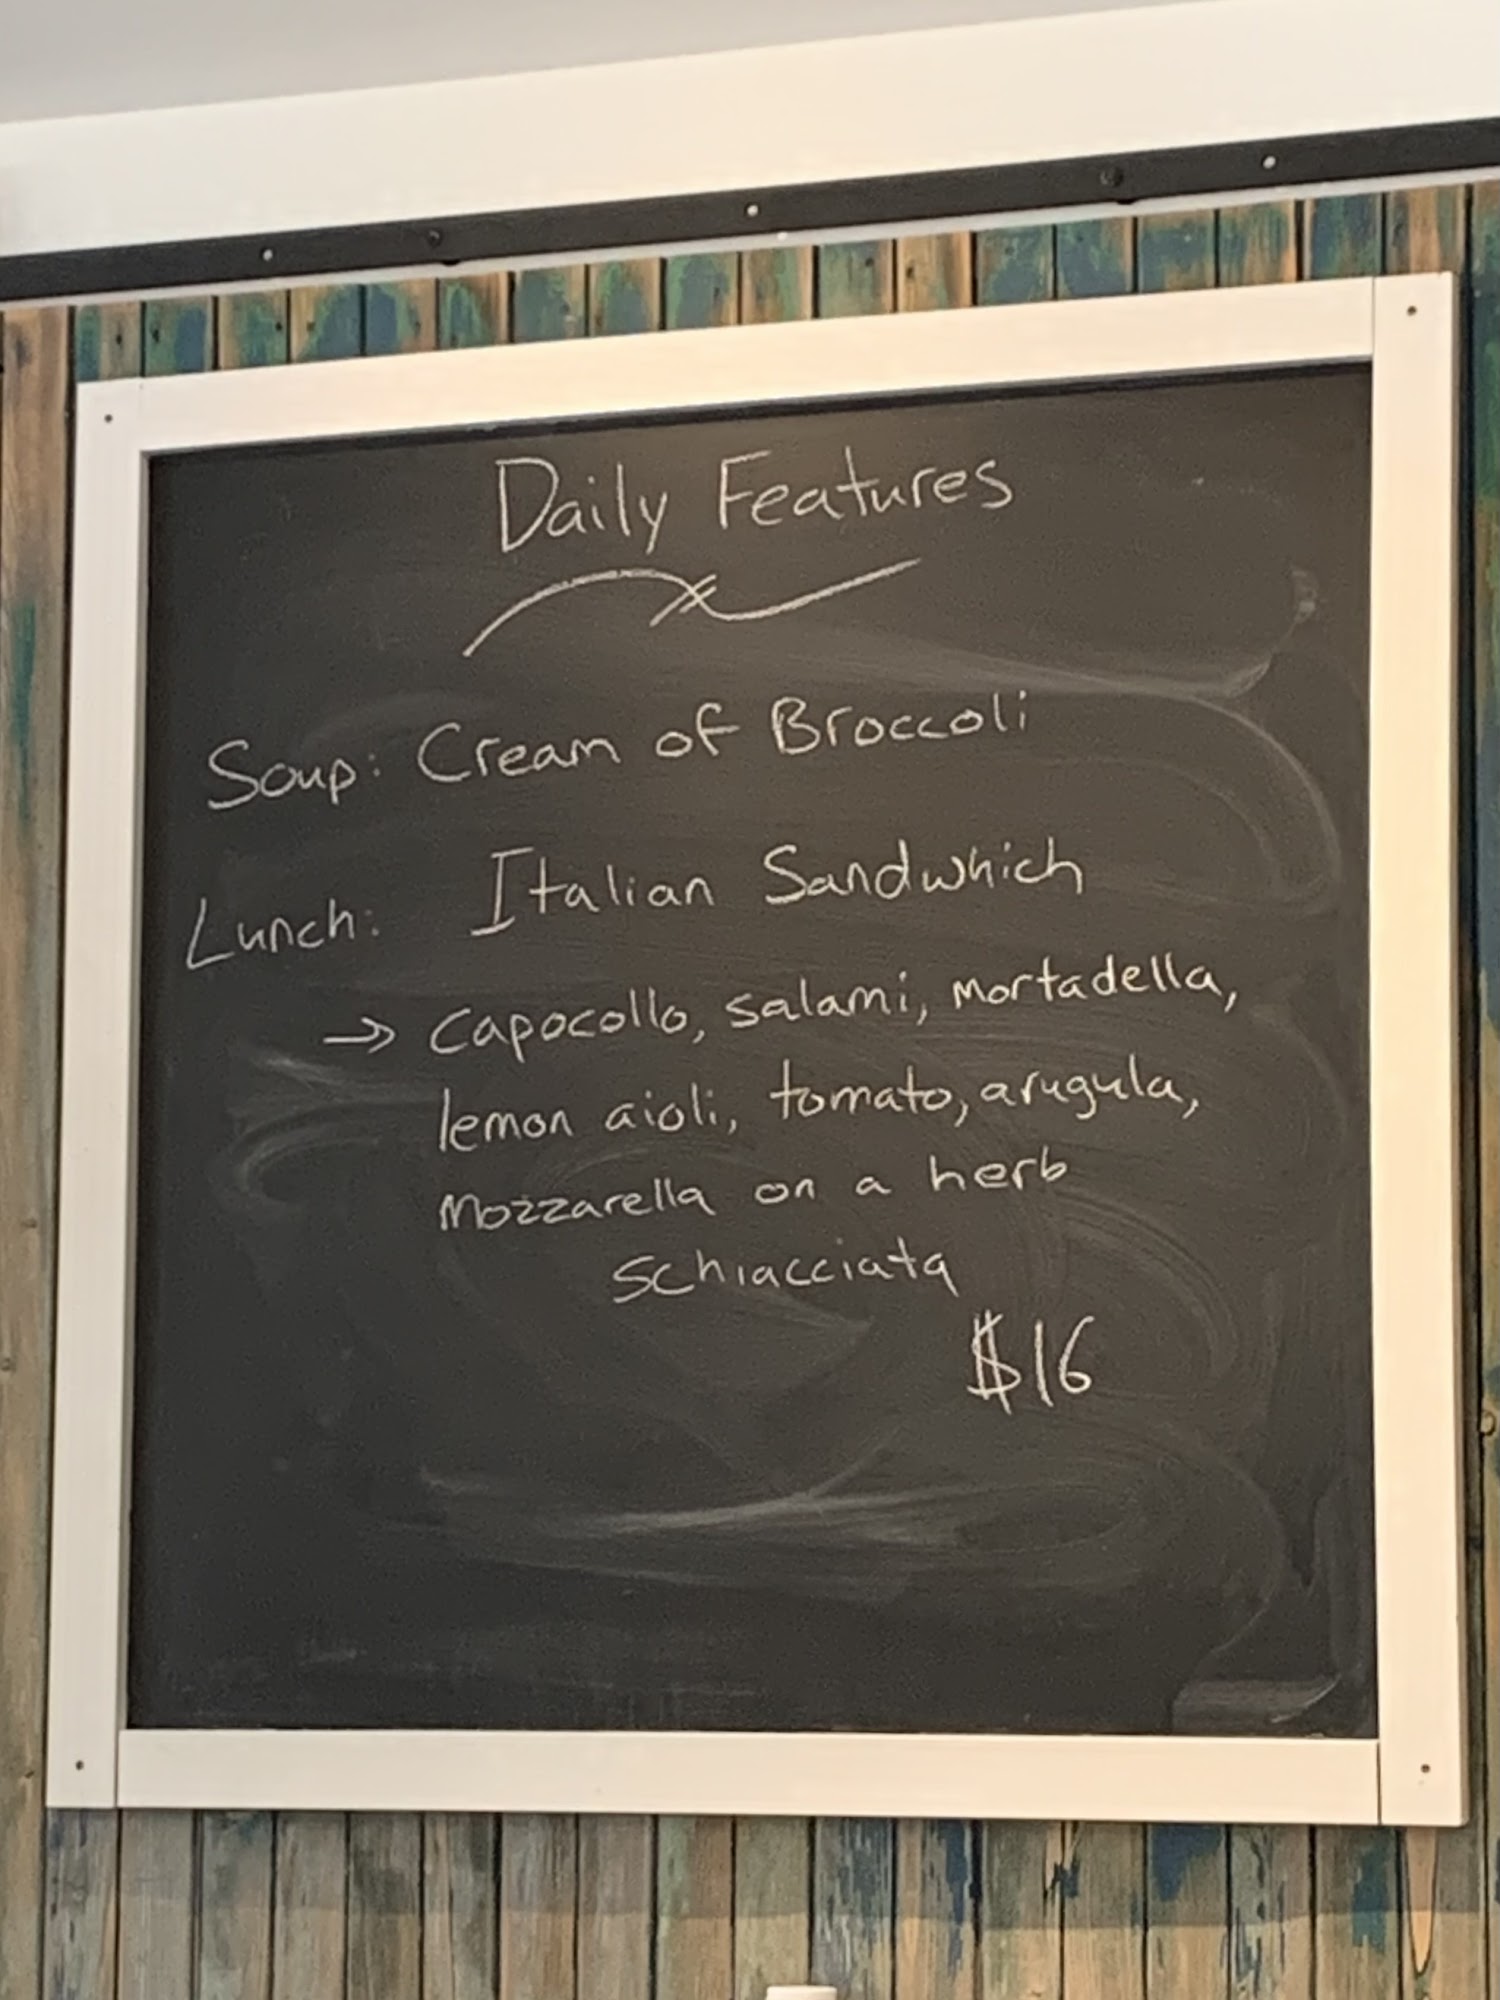 Daily Features
Soup: Cream of Broccoli
Lunch: Italian Sandwhich
→ Capocollo, salami, mortadella,
lemon aioli, tomato, arugula,
Mozzarella on a herb
schiacciata
$16